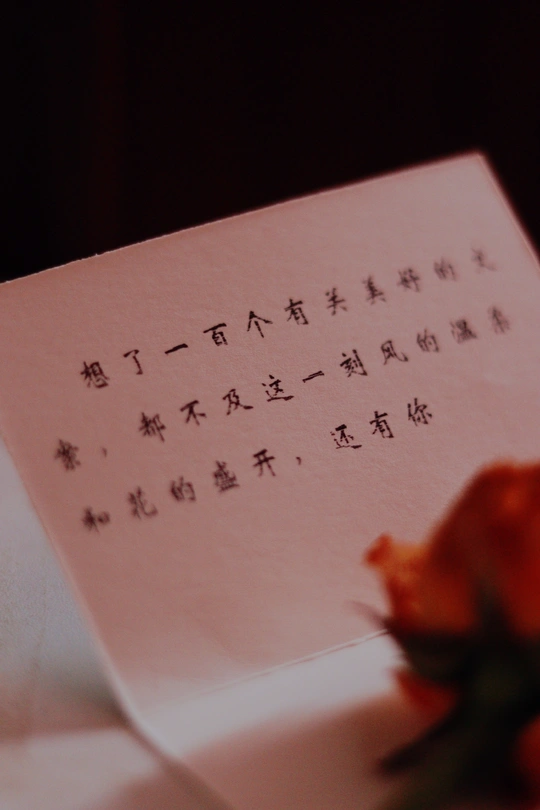 想了一百个有关美好的文
案，都不及这一刻风的温柔
和花的盛开，还有你